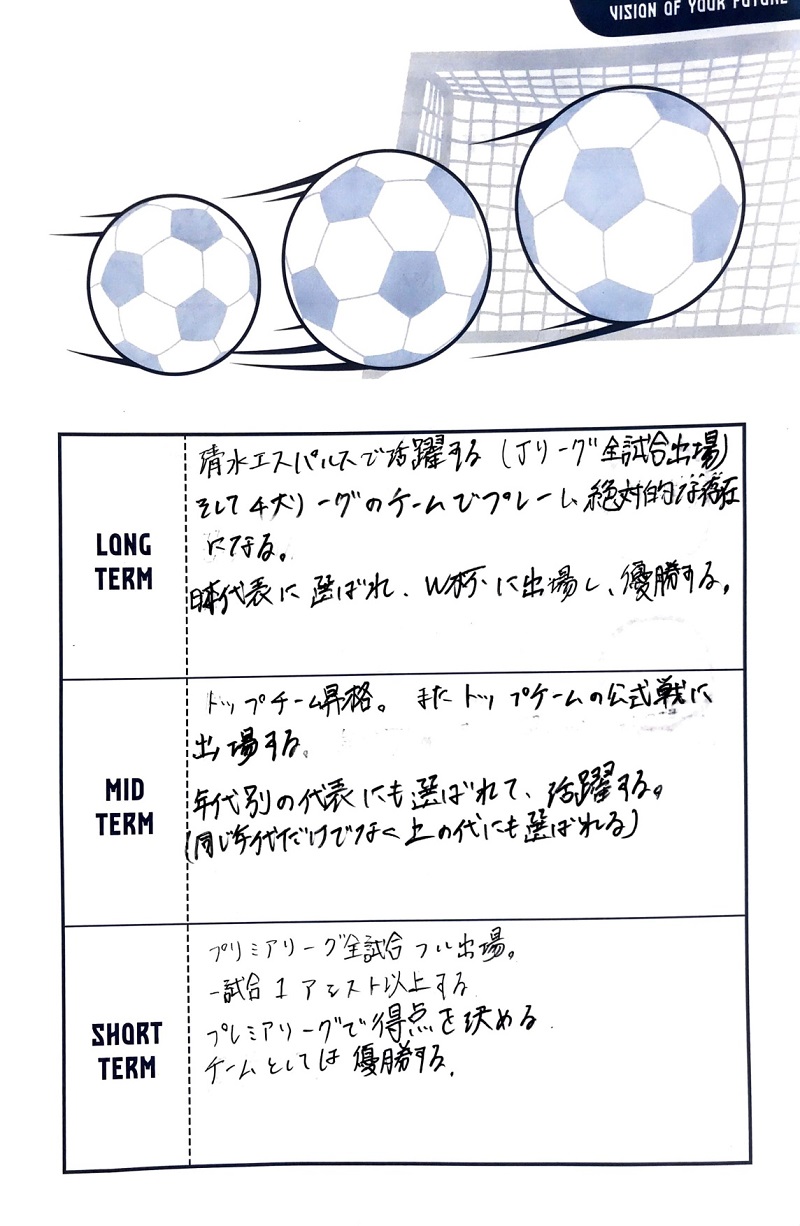 VISION OF YOUR FUTURE
LONG
TERM
清水エスパルスで活躍する (Jリーグ全試合出場)
そして4大リーグのチームでプレーし、絶対的な存在
になる。
日本代表に選ばれ、W杯に出場し、優勝する。
MID
TERM
トップチーム昇格。またトップチームの公式戦に
出場する。
年代別の代表にも選ばれて、活躍する。
(同じ年代だけでなく上の代にも選ばれる)
SHORT
TERM
プレミアリーグ全試合 出場。
一試合1アシスト以上する
プレミアリーグで得点を決める
チームとしては優勝する。